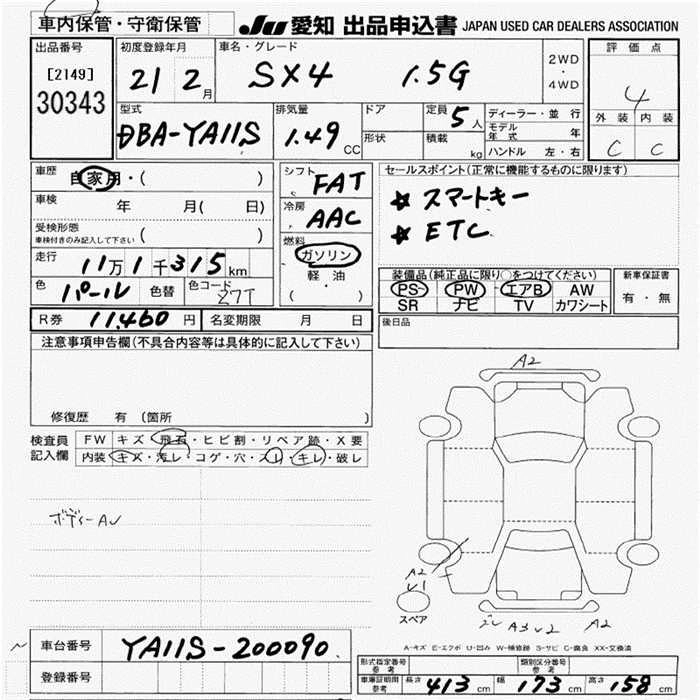 車内保管・守衛保管
JU 愛知 出品申込書 JAPAN USED CAR DEALERS ASSOCIATION
出品番号
[2149]
30343
初度登録年月
21 2月
車名・グレード
SX4 1.5G
2WD
・
4WD
評価点
4
外装 内装
C C
型式
DBA-YA11S
排気量
1.49 CC
ドア
形状
定員 5人
積載 kg
ディーラー・並行
モデル年式 年
ハンドル 左・右
車歴
自家用・( )
車検 年 月( 日)
受検形態
車検付きのみ記入して下さい ( )
走行 11万1千315km
色 パール 色替 色コード Z7T
シフト FAT
冷房 AAC
燃料
ガソリン
軽・油
( )
セールスポイント(正常に機能するものに限ります)
☆ スマートキー
☆ ETC
装備品(純正品に限り○をつけてください)
PS PW エアB AW
SR ナビ TV カワシート
新車保証書
有・無
R券 11,460円 名変期限 月 日
後日品
注意事項申告欄(不具合内容等は具体的に記入して下さい)
修復歴 有 (箇所 )
検査員記入欄
FW キズ・飛石・ヒビ割・リペア跡・X要
内装 キズ・汚レ・コゲ・穴・スレ・キレ・破レ
ボディーAU
A2
A2
U1
スペア
A3 U2
A2
A-キズ E-エクボ U-凹み W-補修跡 S-サビ C-腐食 XX-交換済
車台番号 YA11S-200090
登録番号
形式指定番号 参考
類別区分番号 参考
車庫証明用 参考 長さ 413cm 幅 173cm 高さ 158cm